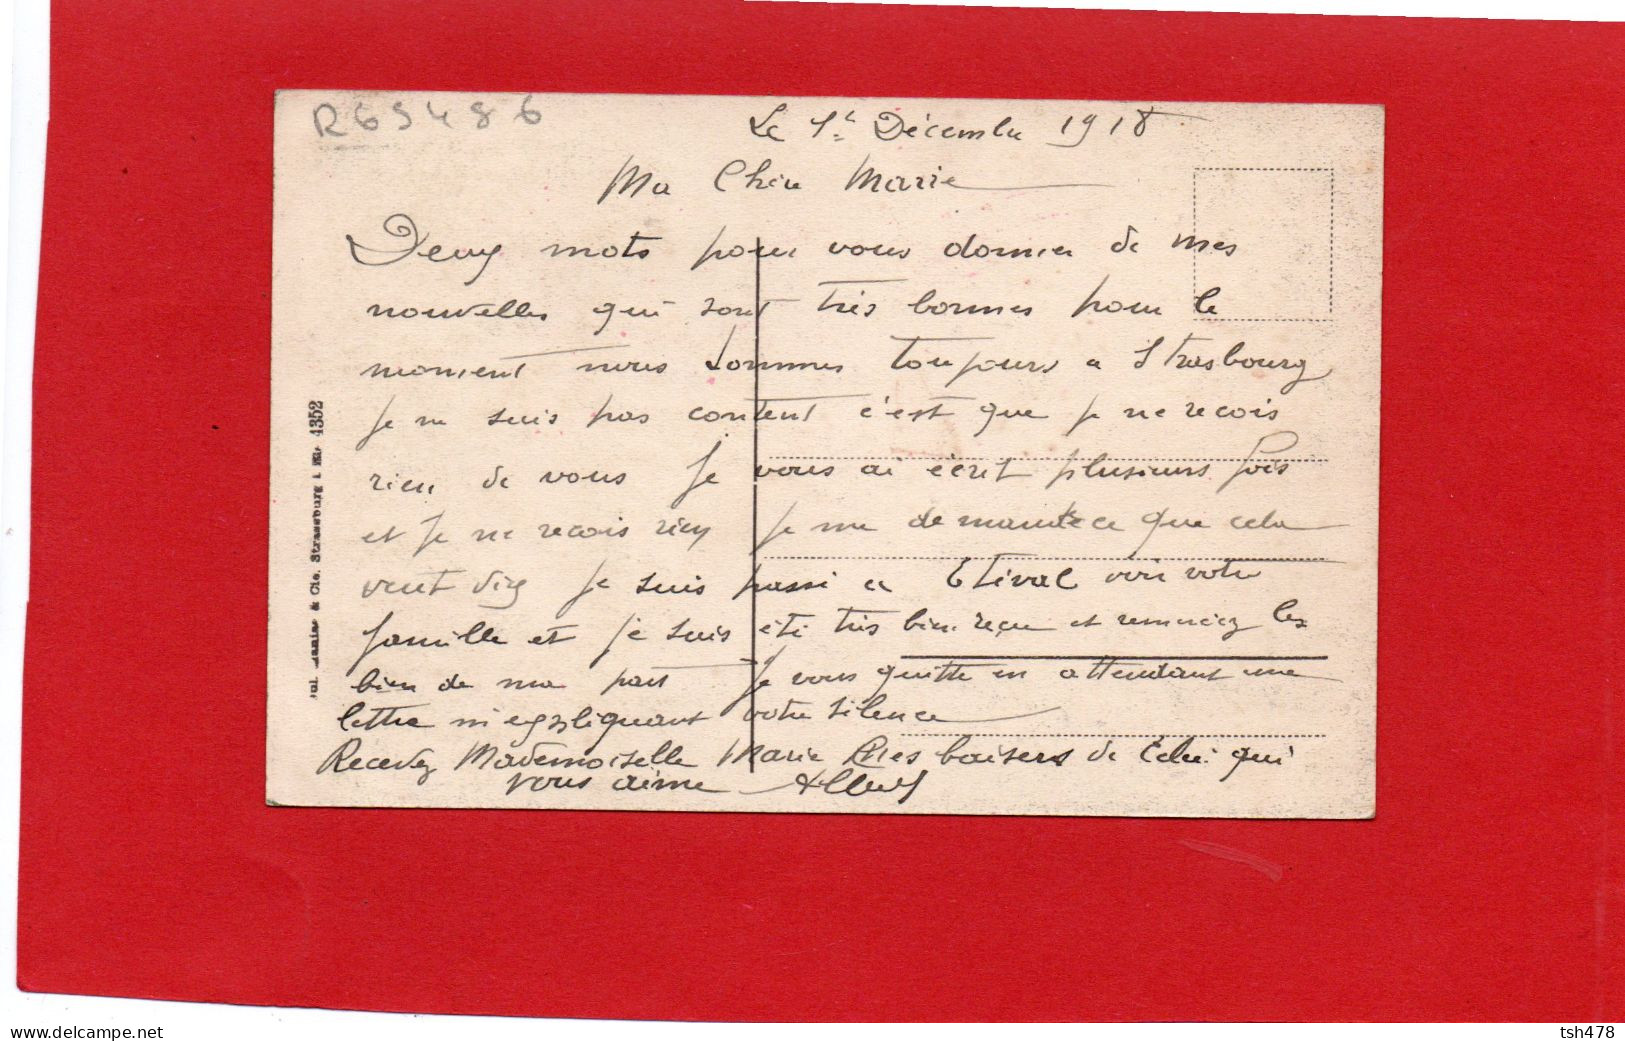 R69486
Le 1er Décembre 1918
Ma Chère Marie
Deux mots pour vous donner de mes
nouvelles qui sont très bonnes pour le
moment nous sommes toujours a Strasbourg
Je ne suis pas content c'est que je ne recois
rien de vous Je vous ai écrit plusieurs fois
et Je ne recois rien Je me demande ce que cela
veut dire Je suis passé a Etival voir votre
famille et Je suis été très bien reçu et remerciez les
bien de ma part Je vous quitte en attendant une
lettre m'expliquant votre silence
Recevez Mademoiselle Marie mes baisers de Celui qui
vous aime Albert
& Cie. Strassburg i. Els. 4352
www.delcampe.net
tsh478